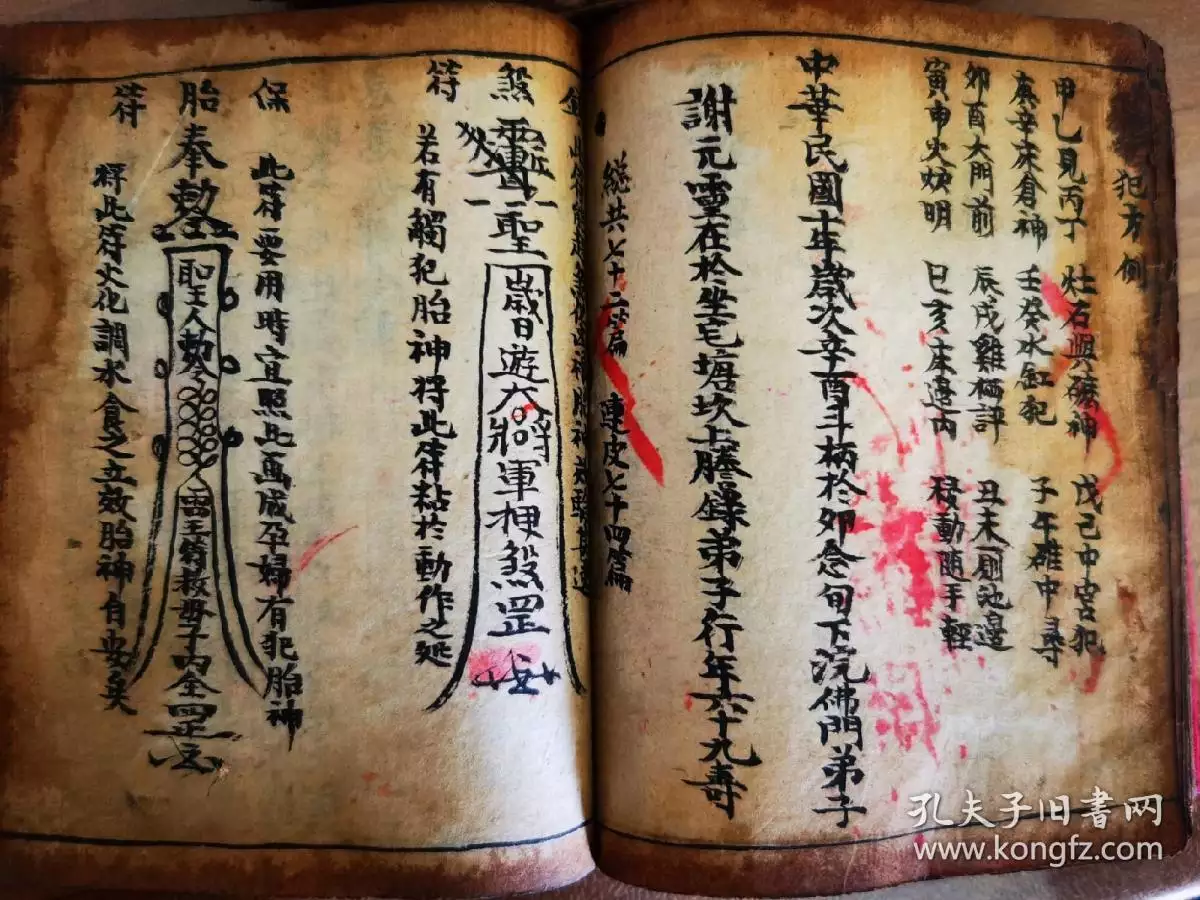 犯方例
甲乙見丙丁 灶石與磚神 戊己中宮犯
庚辛床倉神 壬癸水缸犯 子午碓中尋
卯酉大門前 辰戌雞栖評 丑未厠池邊
寅申火炉明 巳亥床邊內 移動随手輕
中華民國十年歲次辛酉斗柄於卯念旬下浣佛門弟子
謝元靈在於坐宅塘坎上謄錄弟子行年六十九壽
總共七十二篇 連皮七十四篇
煞 聖 歲日遊大將軍押煞罡
符 若有觸犯胎神将此符粘於動作之处
保 此符要用時宜照此画成孕婦有犯胎神
胎 奉勅 聖人勅令 內全罡
符 将此符火化調水食之立效胎神自安矣
孔夫子旧書网
www.kongfz.com